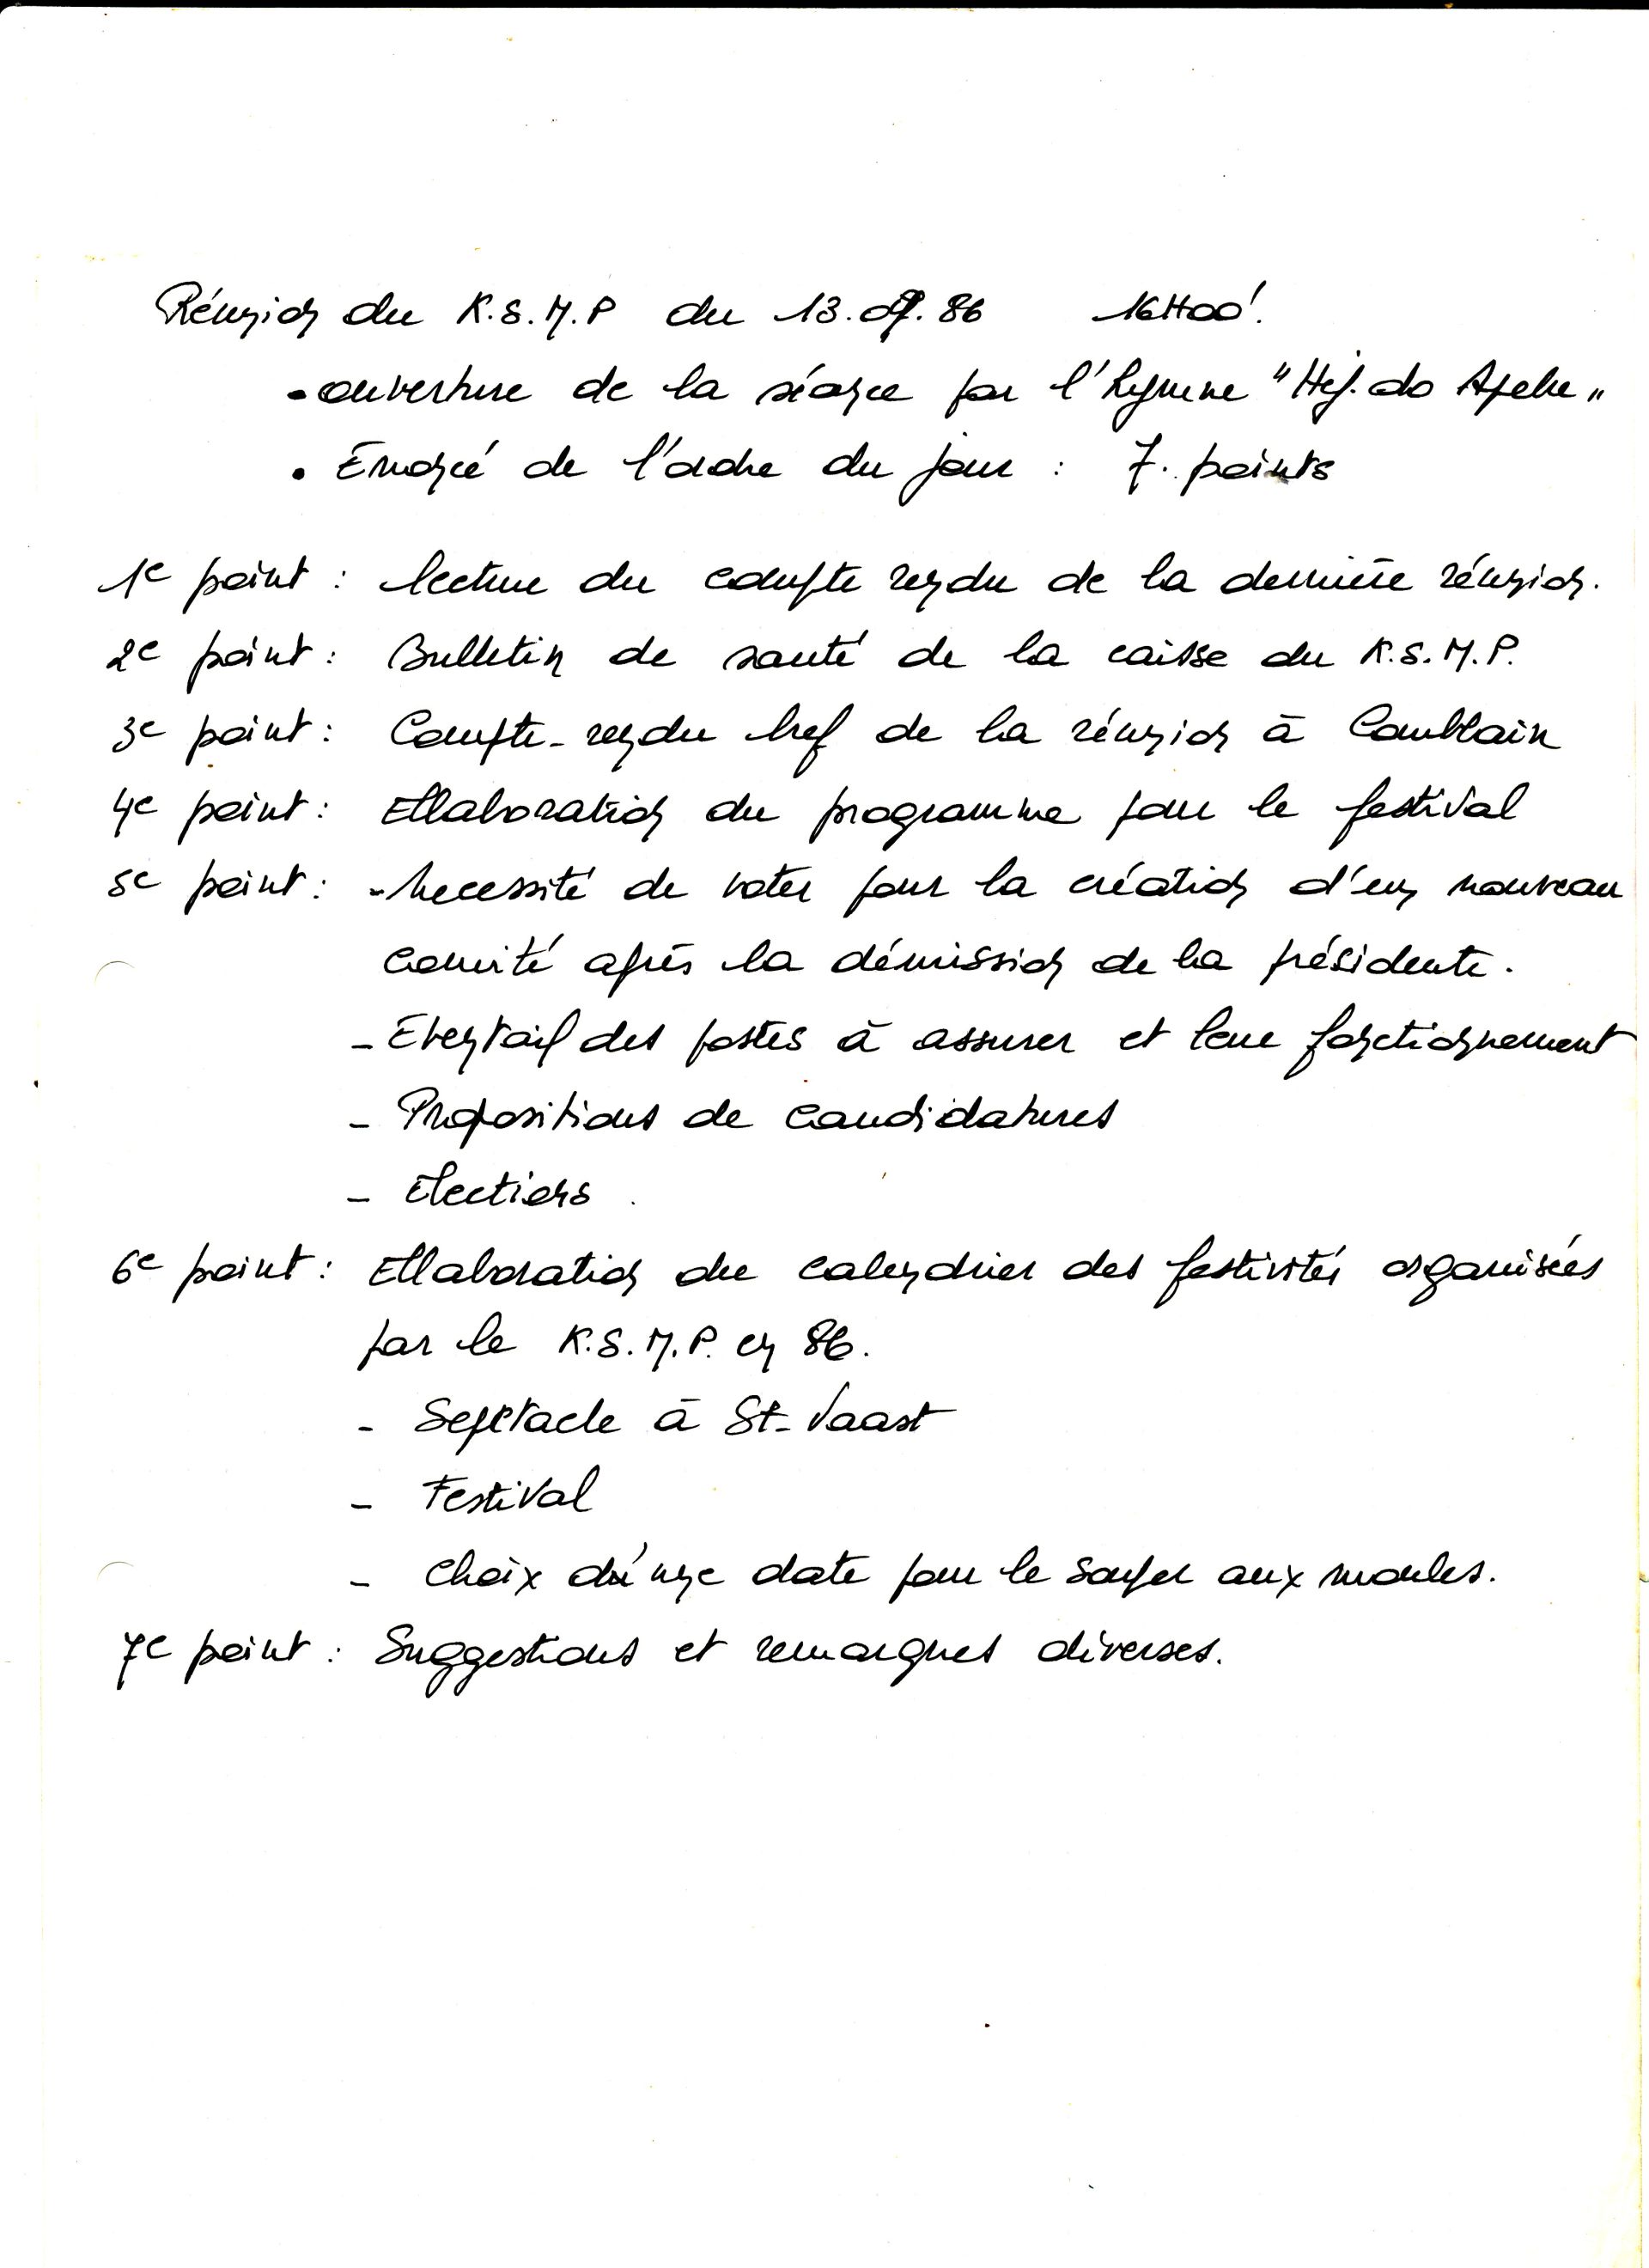 Réunion du K.S.M.P du 13.09.86 16H00'.
• ouverture de la séance par l'hymne "Hej. do Apelu"
• Enoncé de l'ordre du jour : 7. points
1e point : lecture du compte rendu de la dernière réunion.
2e point : Bulletin de santé de la caisse du K.S.M.P.
3e point : Compte-rendu bref de la réunion à Comblain
4e point : Ellaboration du programme pour le festival
5e point : - Necessité de voter pour la création d'un nouveau
comité après la démission de la présidente.
- Eventail des postes à assurer et leur fonctionnement
- Propositions de candidatures
- Elections.
6e point : Ellaboration du calendrier des festivités organisées
par le K.S.M.P. en 86.
- Sepctacle à St-Vaast
- Festival
- Choix d'une date pour le souper aux moules.
7e point : Suggestions et remarques diverses.